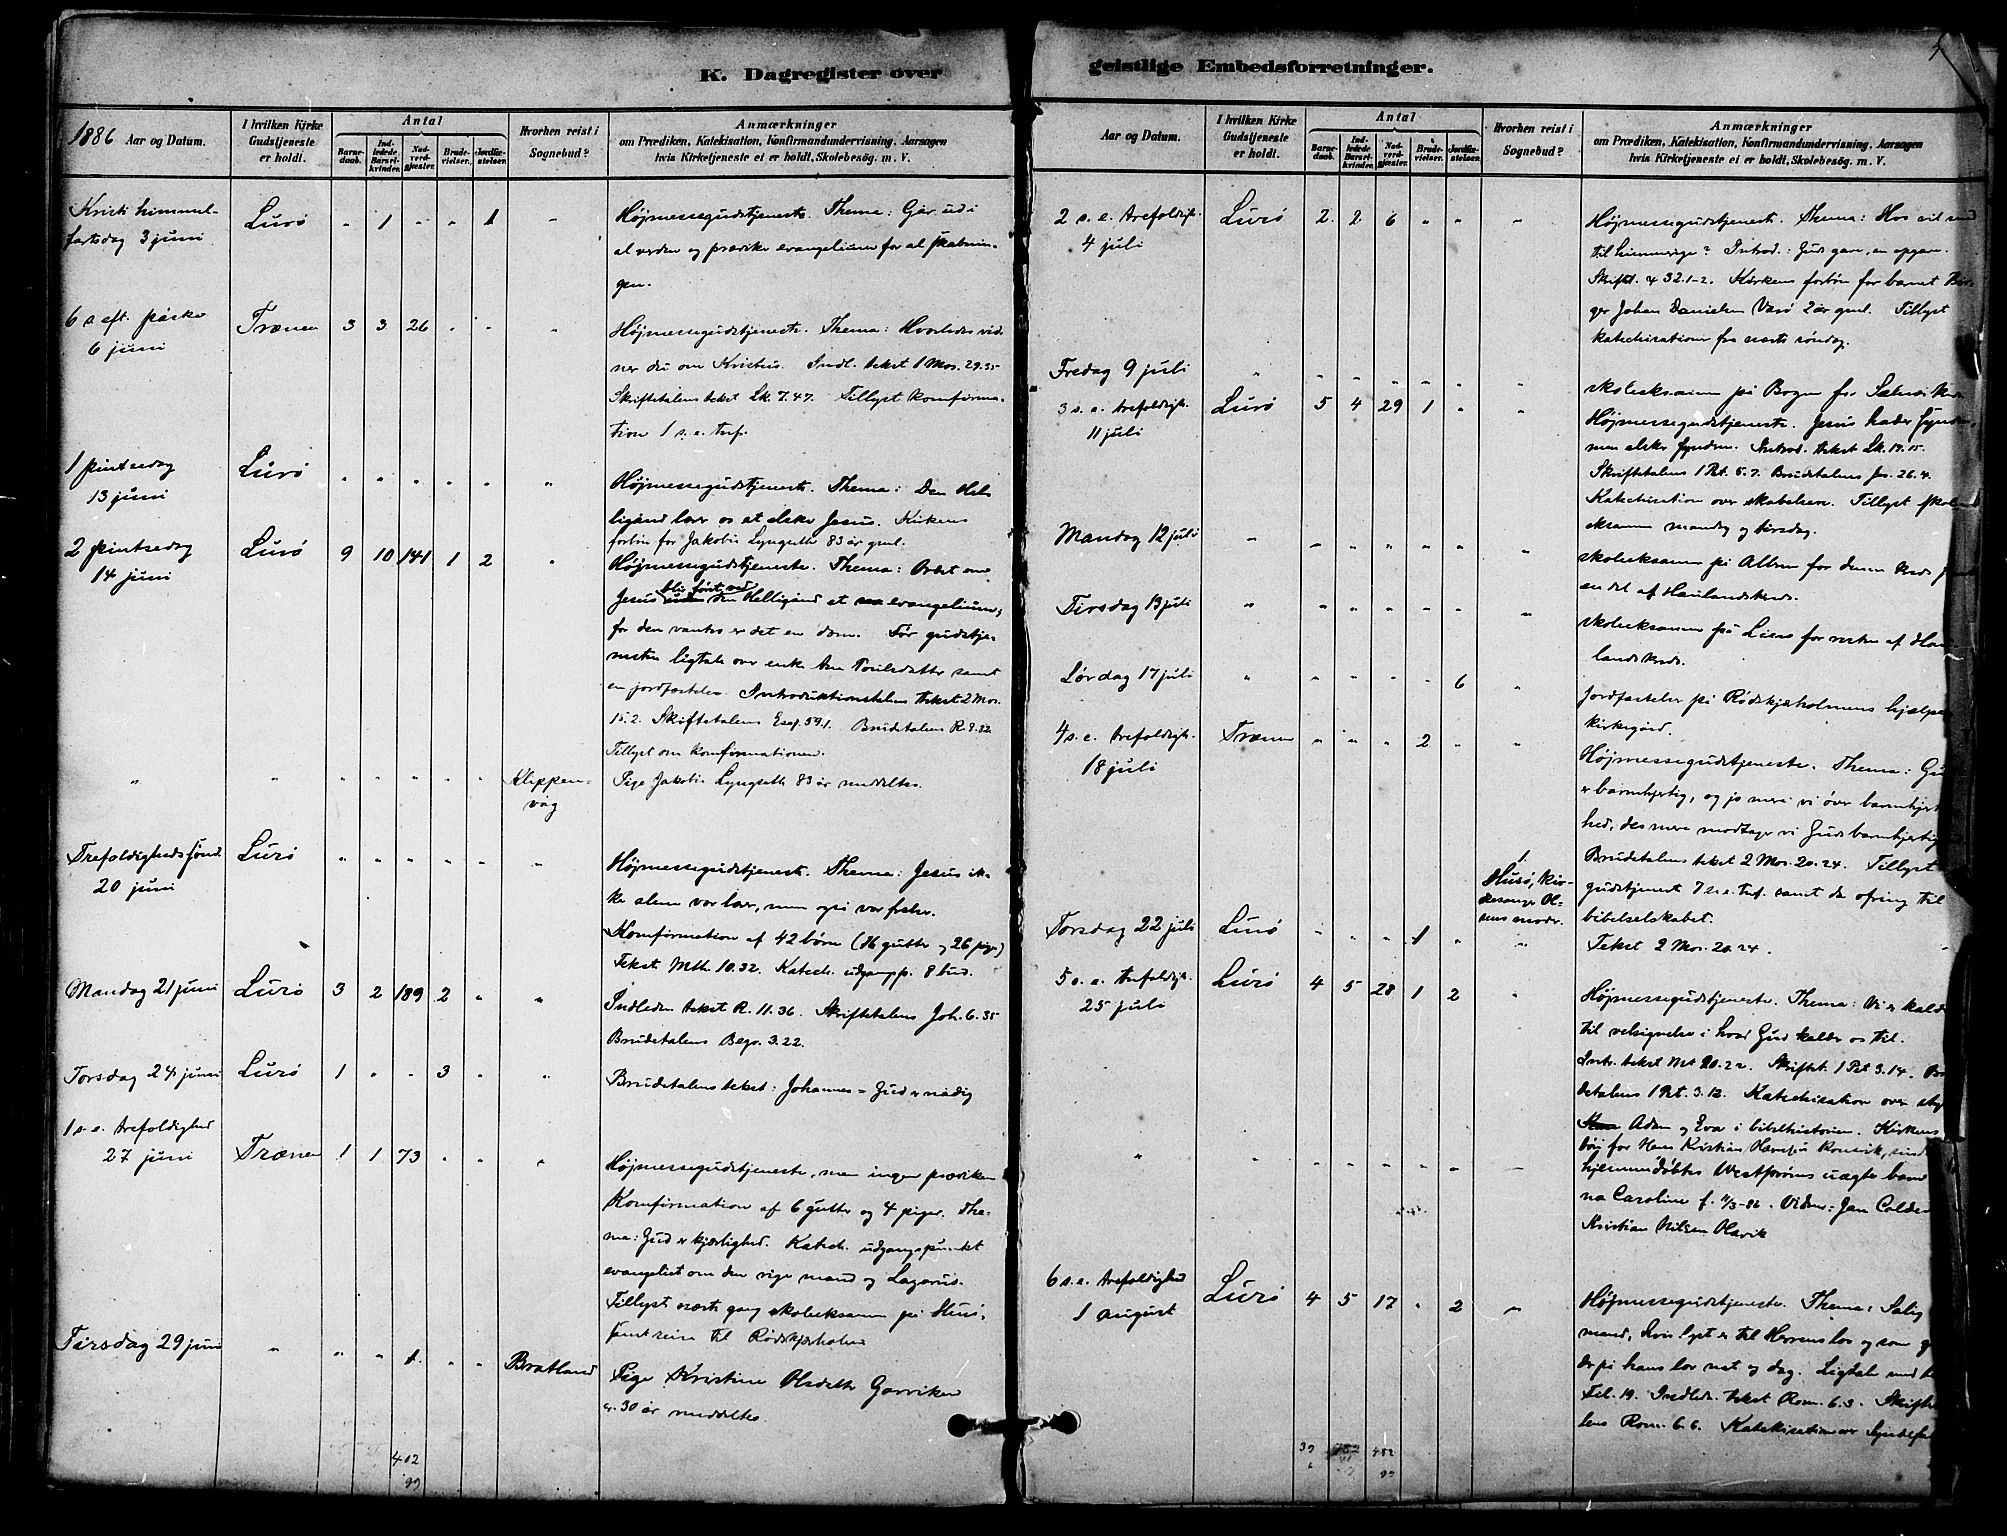 K. Dagregister over
1886 Aar og Datum.
I hvilken Kirke Gudstjeneste er holdt.
Antal
Barnedaab.
Indledede Barselkvinder.
Nadverdgjæster.
Brudevielser.
Jordfæstelser.
Hvorhen reist i Sognebud?
Anmærkninger
om Prædiken, Katekisation, Konfirmandundervisning. Aarsagen
hvis Kirketjeneste ei er holdt, Skolebesøg. m. V.
Kristi himmel-
fartsdag 3 juni Lurø " 1 " " 1 "
Højmessegudstjeneste. Thema: Går ud i
al verden og prædiker evangelium for al skabnin-
gen.
6 s. eft. påske
6 juni Trænen 3 3 26 " " "
Højmessegudstjeneste. Thema: Hvorledes vid-
ner du om Kristus. Indl. tekst 1 Mos. 29.35
Skriftetalens tekst Lk. 7.47. Tillyst konfirma-
tion 1 s. e. tref.
1 pintsedag
13 juni Lurø " " " " " "
Højmessegudstjeneste. Thema: Den Hel-
ligånd lærer os at elske Jesus. Kirkens
forbøn for Jakobia Lyngseth 83 år gml.
2 pintsedag
14 juni Lurø 9 10 141 1 2 "
Højmessegudstjeneste. Thema: Ordet om
Jesus blir ført ved den Helligånd et evangelium,
for den vantro er det en dom. Før gudstje-
nesten ligtale over enke samt
en jordfæstelse. Introduktionstalens tekst 2 Mos.
15.2. Skriftetalens Esaj. 59.1. Brudetalens R. 8.32
Tillyst om konfirmationen.
" " " " " " " Klippen-
våg
Pige Jakobia Lyngseth 83 år meddeltes.
Trefoldigheds sønd.
20 juni Lurø " " " " " "
Højmessegudstjeneste. Thema: Jesus ik-
ke alene vor lærer, men også vor frelser.
Konfirmation af 42 børn (16 gutter og 26 piger)
Tekst Mth. 10.32. Katech. udgangsp. 8 bud.
Mandag 21 juni Lurø 3 2 189 2 " "
Indleden tekst R. 11.36. Skriftetalens Joh. 6.35
Brudetalens Begr. 3.22.
Torsdag 24 juni Lurø 1 " " 3 " "
Brudetalens tekst: Johannes = Gud er nådig
1 s. e. trefoldighed
27 juni Trænen 1 1 73 " " "
Højmessegudstjeneste, men ingen prædiken
Konfirmation af 6 gutter og 4 piger. The-
ma: Gud er kjærlighed. Katech. udgangspunkt
evangeliet om den rige mand og Lazarus.
Tillyst næste gang skoleeksamen på Husø,
samt reise til Rødskjærholmen
Tirsdag 29 juni " " " 1. " " Bratland
Pige Kristine Olsdatter Garviken
30 år meddeltes.
402
99
geistlige Embedsforretninger.
Aar og Datum.
I hvilken Kirke Gudstjeneste er holdt.
Antal
Barnedaab.
Indledede Barselkvinder.
Nadverdgjæster.
Brudevielser.
Jordfæstelser.
Hvorhen reist i Sognebud?
Anmærkninger
om Prædiken, Katekisation, Konfirmandundervisning, Aarsagen
hvis Kirketjeneste ei er holdt, Skolebesøg. m. V.
2 s. e. trefoldigh.
4 juli Lurø 2 2 6 " " "
Højmessegudstjeneste. Thema: Hvo vil med
til himmerige? Introd.: Guds gave, en opgave.
Skriftet. 32.1-2. Kirkens forbøn for barnet Bir-
ger Johan Danielsen Varø 2 år gml. Tillyst
katechisation fra næste søndag.
Fredag 9 juli " " " " " " "
skoleeksamen på Bogen for
3 s. e. trefoldigh.
11 juli Lurø 5 4 29 1 " "
Højmessegudstjeneste. Jesus hader synden,
men elsker synderen. Introd. tekst Lk. 17.15.
Skriftetalens 1 Pet. 5.7. Brudetalens Jes. 26.4.
Katechisation over skabelsen. Tillyst skole-
eksamen mandag og tirsdag.
Mandag 12 juli " " " " " " "
skoleeksamen på for denne kreds
en del af
Tirsdag 13 juli " " " " " " "
skoleeksamen på for resten af
landskreds.
Lørdag 17 juli " " " " " 6 "
Jordfæstelser på Rødskjærholmens hjælpe-
kirkegård.
4 s. e. trefoldigh.
18 juli Trænen " " " 2 " "
Højmessegudstjeneste. Thema: Gud
er barmhjertig, og jo mere vi øver barmhjertig-
hed, des mere modtager vi Guds barmhjertig
Brudetalens tekst 2 Mos. 20.24. Tillyst
gudstjeneste 7 s. e. tref. samt da ofring til
bibelselskabet.
1.
Husø, kir-
kesanger Ol-
sens moder.
Torsdag 22 juli Lurø " " " 1 " "
Tekst 2 Mos. 20.24.
5 s. e. trefoldigh.
25 juli Lurø 4 5 28 1 2 "
Højmessegudstjeneste. Thema: Vi er kaldet
til velsignelse i hvad Gud kalder os til.
Intr. tekst Mt 20.22. Skriftet. 1 Pet 3.14. Bru-
detalens 1 Pet. 3.12. Katechisation over
Adam og Eva i bibelhistorien. Kirkens
bøn for Hans Kristian
hjemmedøbtes uægte barn
na Caroline f. 11/3-86. Vidner: Jan
Kristian Nilsen Olsvik
6 s. e. trefoldighed
1 august Lurø 4 5 17 " 2 "
Højmessegudstjeneste. Thema: Salig
mand, hvis lyst er til Herrens lov og som
der på hans lov nat og dag. Ligtale med
Fil. 19. Indlede. tekst Rom. 6.3. Skrifte-
lens Rom. 6.6. Katekisation over Syndefal
39
482
99